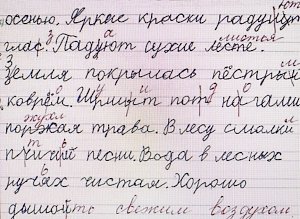 осенью. Яркие краски радуют
глаз. Падают сухие листья
Земля покрылась пёстрым
ковром. Шуршит под ногами
пожухлая трава. В лесу смолкли
птичьи песни. Вода в лесных
лучах чистая. Хорошо
дышать свежим воздухом